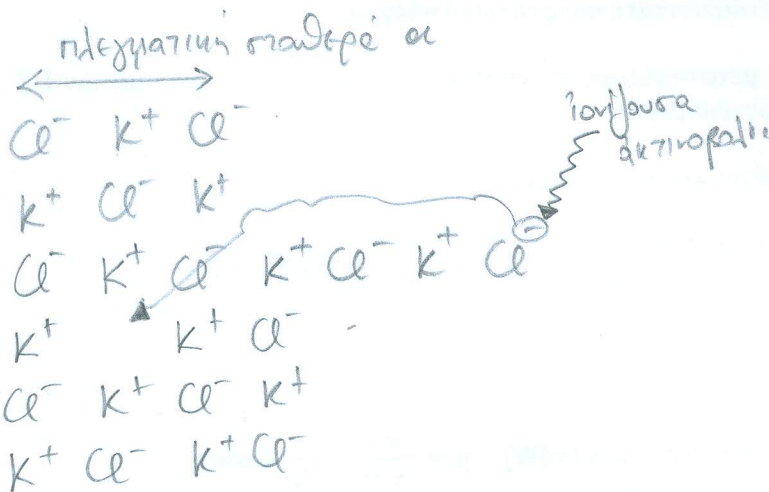 πλεγματική σταθερά α
Cl⁻ K⁺ Cl⁻
ιονίζουσα
ακτινοβολί
K⁺ Cl⁻ K⁺
Cl⁻ K⁺ Cl⁻ K⁺ Cl⁻ K⁺ Cl ⊖
K⁺ K⁺ Cl⁻
Cl⁻ K⁺ Cl⁻ K⁺
K⁺ Cl⁻ K⁺ Cl⁻